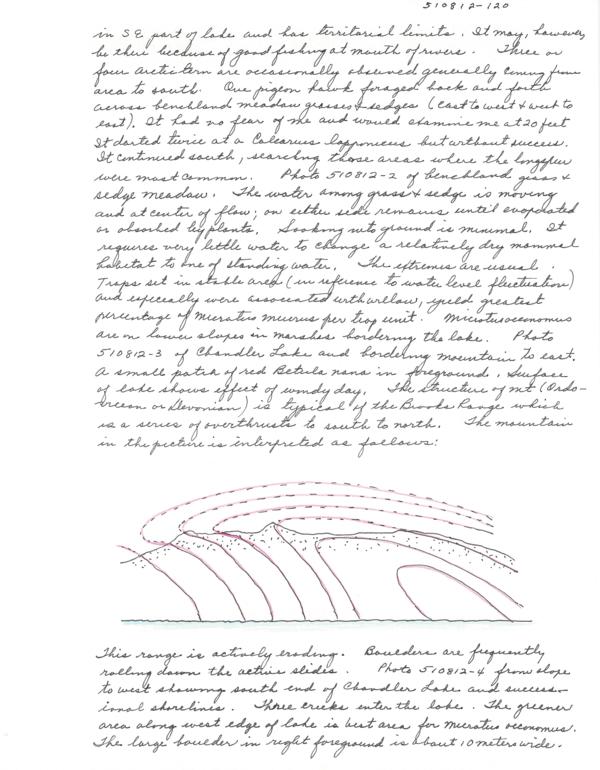 510812-120
in SE part of lake and has territorial limits. It may, however,
be there because of good fishing at mouth of rivers. Three or
four Arctic tern are occasionally observed generally coming from
area to south. One pigeon hawk foraged back and forth
across benchland meadow grasses & sedges (east to west & west to
east). It had no fear of me and would examine me at 20 feet
It darted twice at a Calcarius lapponicus but without success.
It continued south, searching those areas where the longspur
were most common. Photo 510812-2 of benchland grass &
sedge meadow. The water among grass & sedge is moving
and at center of flow; on either side remains until evaporated
or absorbed by plants. Soaking into ground is minimal. It
requires very little water to change a relatively dry mammal
habitat to one of standing water. The extremes are usual.
Traps set in stable area (in reference to water level fluctuation)
and especially were associated with willow, yield greatest
percentage of Microtus miurus per trap unit. Microtus oeconomus
are on lower slopes in marshes bordering the lake. Photo
510812-3 of Chandler Lake and bordering mountain to east.
A small patch of red Betula nana in foreground. Surface
of lake shows effect of windy day. The structure of mt (Ordo-
vicean or Devonian) is typical of the Brooks Range which
is a series of overthrusts to south to north. The mountain
in the picture is interpreted as follows:
This range is actively eroding. Boulders are frequently
rolling down the active slides. Photo 510812-4 from slope
to west showing south end of Chandler Lake and success-
ional shorelines. Three creeks enter the lake. The greener
area along west edge of lake is best area for Microtus oeconomus.
The large boulder in right foreground is about 10 meters wide.